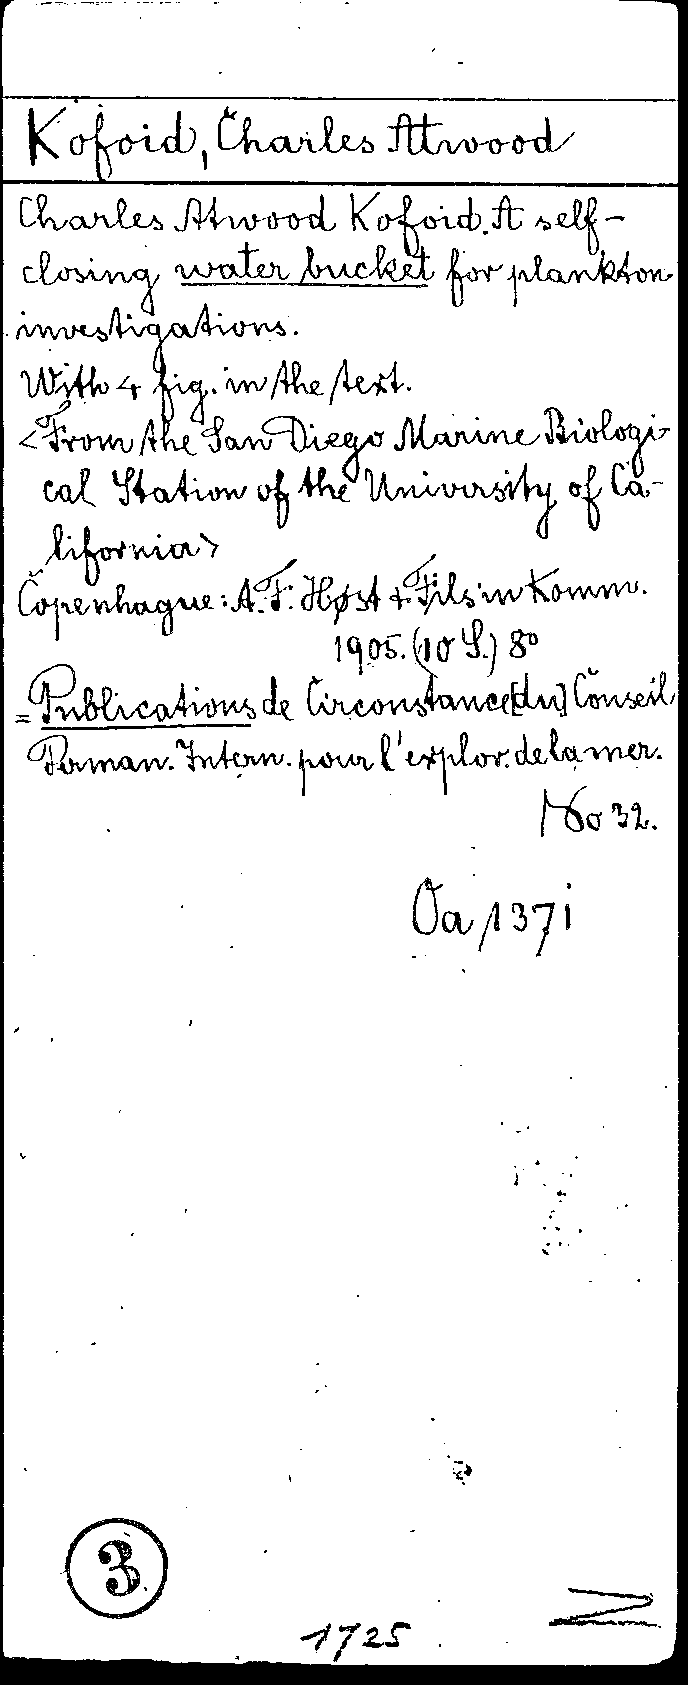 Kofoid, Charles Atwood
Charles Atwood Kofoid. A self-
closing water bucket for plankton
investigations.
With 4 fig. in the text.
<From the San Diego Marine Biologi-
cal Station of the University of Ca-
lifornia>
Copenhague: A. F. Høst & Fils in Komm.
1905. (10 S.) 8°
= Publications de Circonstance [du] Conseil
Perman. Intern. pour l'explor. de la mer.
No 32.
Oa 1371
3
1725